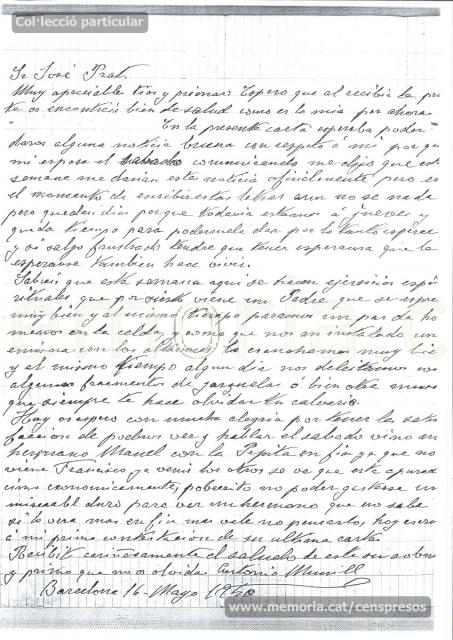 Col·lecció particular
Sr José Prat.
Muy apreciable tios y primas: Espero que al recibir la pre
te os encontreis bien de salud como es la mia por ahora
En la presente carta esperaba poder
daros alguna noticia buena con respeto á mi porque
mi esposa el sabado comunicando me dijo que est
semana me darian esta noticia oficialmente pero en
el momento de escribir estas letras aun no se nada
pero quedan dias porque todavia estamos á jueves y
queda tiempo para poderosla dar por lo tanto espero
y si salgo frustrado tendre que tener esperansa que la
esperansa tambien hace vivir.
Sabreis que esta semana aqui se hacen ejercicios espi
rituales, que por sierto viene un Padre que se espre
muy bien y al mismo tiempo pasamos un par de ho
menos en la celda, y como que nos an instalado un
emisora con los altavoces, lo escuchamos muy bie
y al mismo tiempo algun dia nos deleitamos con
algunos fragmentos de zarzuela ó bien otra musi
que siempre te hace olvidar tu calvario.
Hoy os espero con mucha alegria por tener la sati
faccion de podeos ver y hablar el sabado vino mi
hermano Manel con la Pepita en fin ya que no
viene Francisco, ya veni los otros se ve que este apurad
cimo economicamente, pobrecito no poder gastarse un
miserable duro para ver un hermano que no sabe
si lo vera mas en fin mas vale no pensarlo, hoy escri
á mi prima contestacion de su ultima carta
Recibit cariñosamente el saludo de este su sobri
y primo que no os olvida Antonio Munill
Barcelona 16-Mayo 1940
www.memoria.cat/censpresos